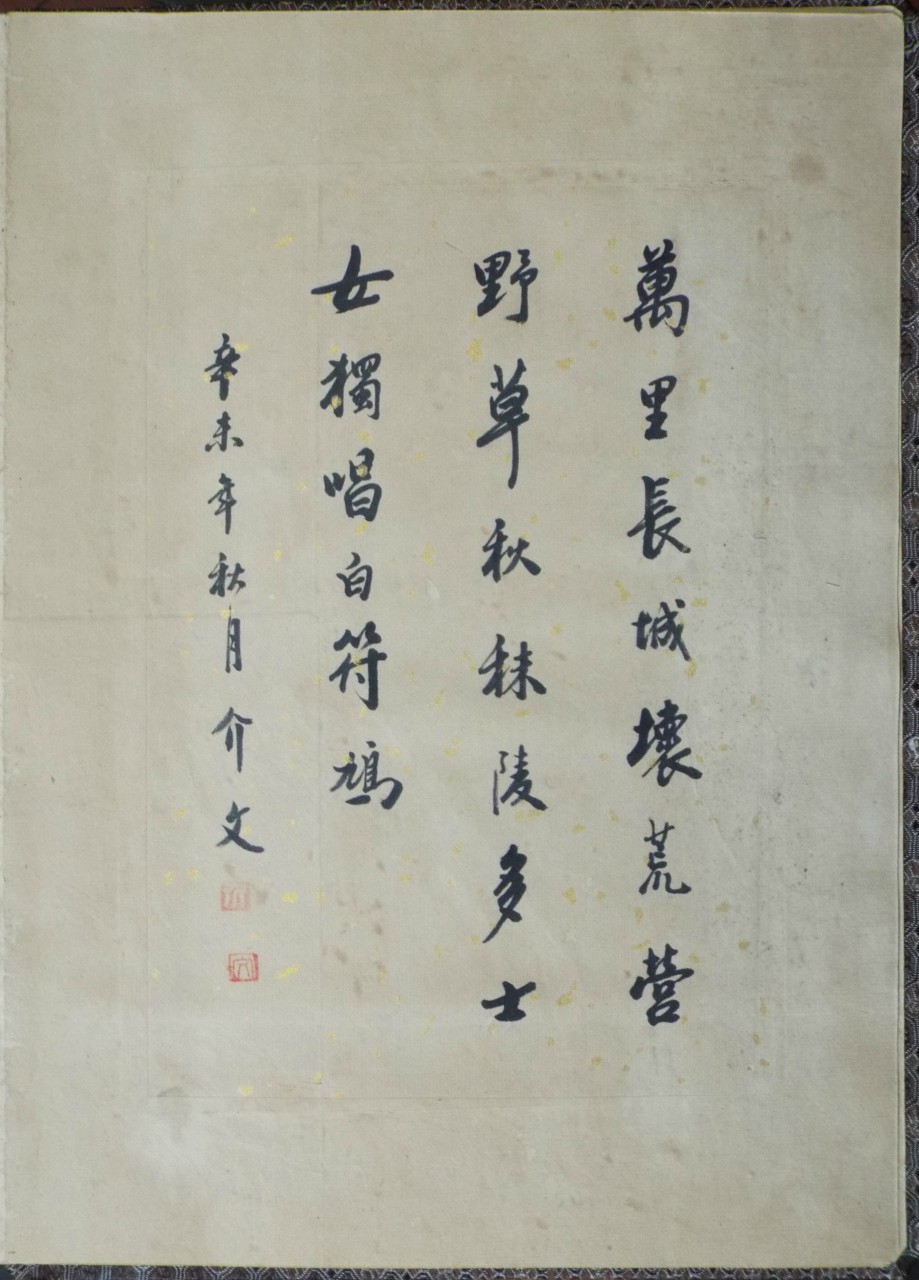 萬里長城壞荒營
野草秋秣陵多士
女獨唱白符鳩
辛未年秋月介文